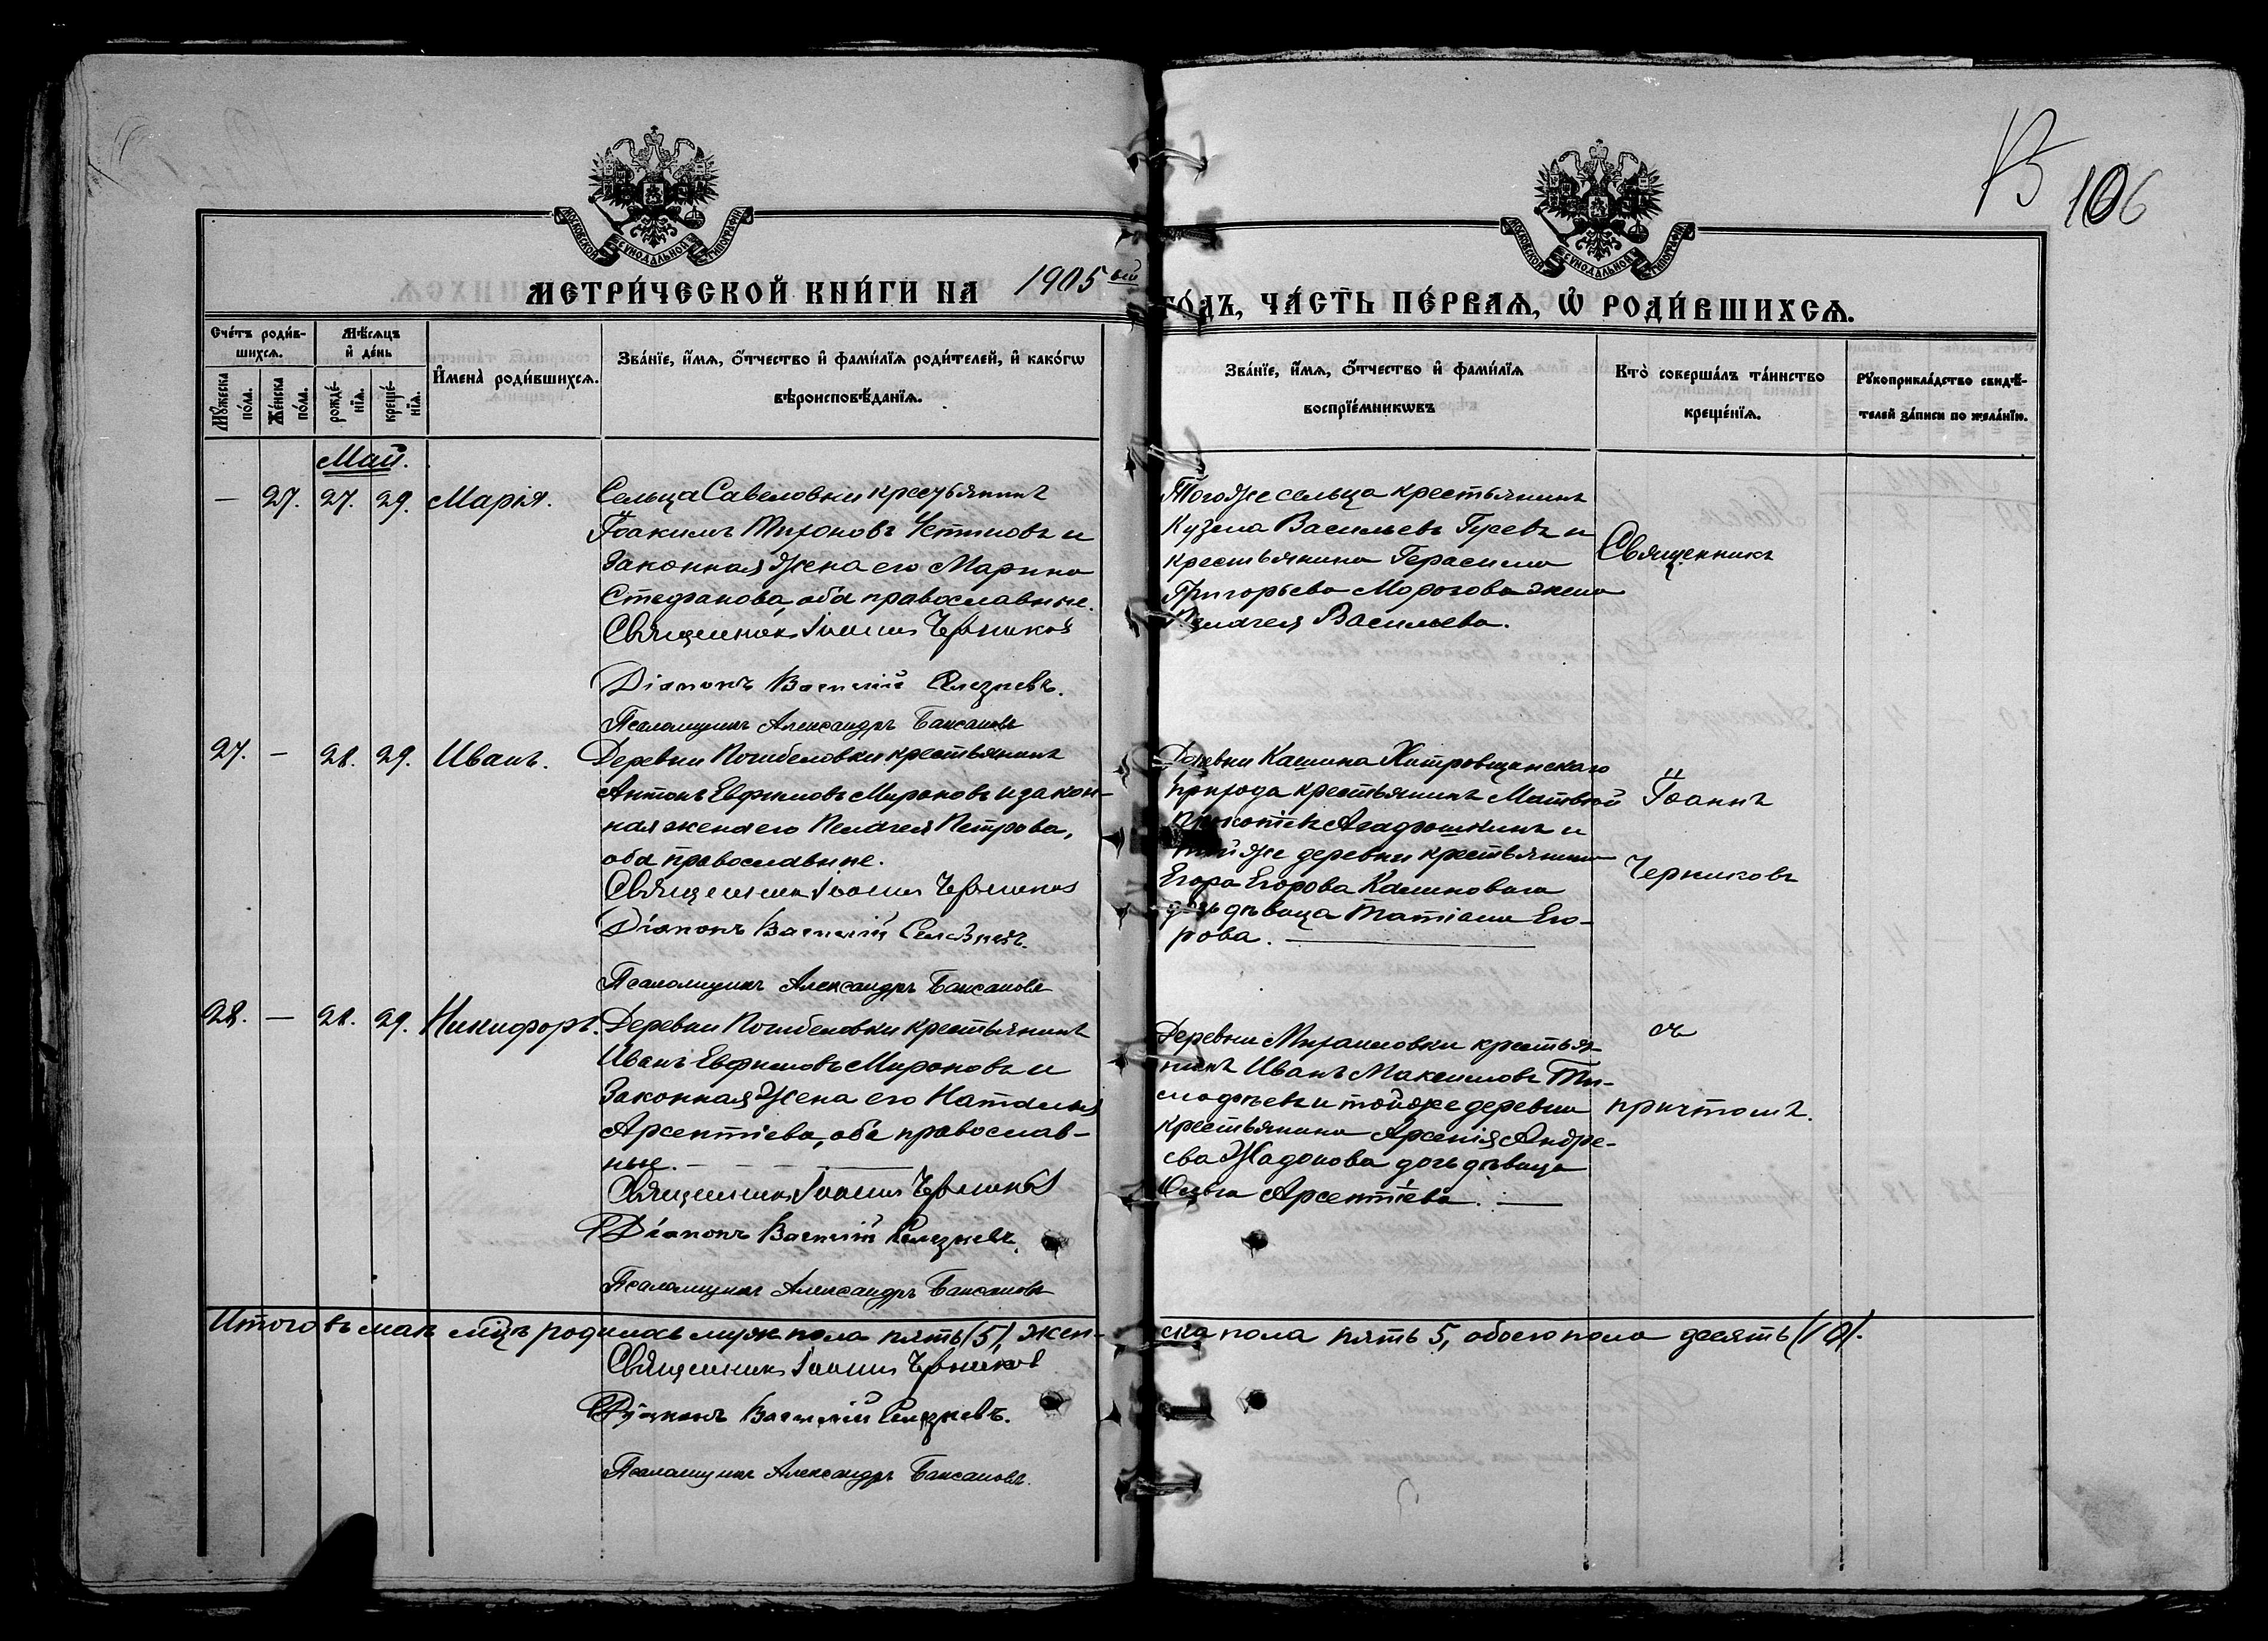 В 106
МОСКОВСКОЙ СѴНОДАЛЬНОЙ ТИПОГРАФІИ
МОСКОВСКОЙ СѴНОДАЛЬНОЙ ТИПОГРАФІИ
МЕТРИ́ЧЕСКОЙ КНИ́ГИ НА 1905 ый ГО́ДЪ, ЧА́СТЬ ПЕ́РВАѦ, Ѡ҆ РОДИ́ВШИХСѦ.
Сче́тъ роди́в-
шихсѧ.
Мѣ́сѧцъ
и҆ де́нь
Мꙋ́жеска
по́ла.
Же́нска
по́ла.
рожде́-
нїѧ.
креще́-
нїѧ.
И҆мена̀ роди́вшихсѧ.
Зва́нїе, и҆́мѧ, ѻ҆́тчество и҆ фами́лїѧ роди́телей, и҆ како́гѡ
вѣроисповѣ́данїѧ.
Зва́нїе, и҆́мѧ, ѻ҆́тчество и҆ фами́лїѧ
воспрїе́мникѡвъ
Кто̀ соверша́лъ та́инство
креще́нїѧ.
Рꙋкоприкла́дство свидѣ́-
телей за́писи по жела́нїю.
Май.
— 27. 27. 29. Марія.
Сельца Савеловки крестьянинъ
Іоакимъ Тихоновъ Устиновъ и
законная жена его Марина
Стефанова, оба православные.
Священникъ Іоаннъ Черниковъ
Діаконъ Василій Селезневъ.
Псаломщикъ Александръ Баксановъ
Того же сельца крестьянинъ
Кузьма Васильевъ Гусевъ и
крестьянина Герасима
Григорьева Морозова жена
Пелагея Васильева.
Священникъ
27. — 28. 29. Иванъ.
Деревни Погибеловки крестьянинъ
Антонъ Евфимовъ Мироновъ и закон-
ная жена его Пелагея Петрова,
оба православные.
Священникъ Іоаннъ Черниковъ
Діаконъ Василій Селезневъ.
Псаломщикъ Александръ Баксановъ
Деревни Кашина Хитровщинскаго
прихода крестьянинъ Матвей
той же деревни крестьянина
Егора Егорова Калиноваго
дочь дѣвица Татіана Его-
рова.
Іоаннъ
Черниковъ
28. — 28. 29. Никифоръ.
Деревни Погибеловки крестьянинъ
Иванъ Евфимовъ Мироновъ и
законная жена его Наталья
Арсентіева, оба православ-
ные.
Священникъ Іоаннъ Черниковъ
Діаконъ Василій Селезневъ.
Псаломщикъ Александръ Баксановъ
Деревни Михаиловки крестья-
нинъ Иванъ Максимовъ Ти-
мофѣевъ и той же деревни
крестьянина Арсенія Андре-
ева Жадонова дочь дѣвица
Ольга Арсентіева.
съ
причтомъ.
Итого въ маѣ мцѣ родилось муж пола пять (5), жен-
ска пола пять 5, обоего пола десять (10).
Священникъ Іоаннъ Черниковъ
Діаконъ Василій Селезневъ.
Псаломщикъ Александръ Баксановъ.